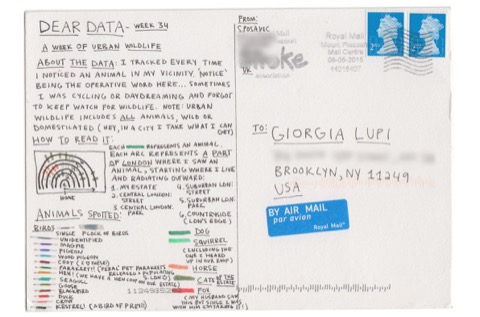 DEAR DATA - WEEK 34
A WEEK OF URBAN WILDLIFE
ABOUT THE DATA: I TRACKED EVERY TIME
I NOTICED AN ANIMAL IN MY VICINITY, 'NOTICE'
BEING THE OPERATIVE WORD HERE... SOMETIMES
I WAS CYCLING OR DAYDREAMING AND FORGOT
TO KEEP WATCH FOR WILDLIFE. NOTE! URBAN
WILDLIFE INCLUDES ALL ANIMALS, WILD OR
DOMESTICATED (HEY, IN A CITY I TAKE WHAT I CAN
GET)
HOW TO READ IT:
EACH REPRESENTS AN ANIMAL.
EACH ARC REPRESENTS A PART
OF LONDON WHERE I SAW AN
ANIMAL, STARTING WHERE I LIVE
AND RADIATING OUTWARD:
1. MY ESTATE
2. CENTRAL LONDON:
STREET
3. CENTRAL LONDON:
PARK
4. SUBURBAN LDN:
STREET
5. SUBURBAN LDN:
PARK
6. COUNTRYSIDE
(LDN'S EDGE)
HOME
ANIMALS SPOTTED:
BIRDS
SINGLE FLOCK OF BIRDS
UNIDENTIFIED
MAGPIE
PIGEON
WOOD PIGEON
COOT
PARAKEET!!
HEN!
SEAGULL
GOOSE
BLACKBIRD
DUCK
CROW
KESTREL! (A BIRD OF PREY!)
DOG
SQUIRREL
(INCLUDING THE
ONE I HEARD
UP IN OUR
HORSE
CATS
FOX
(MY HUSBAND SAW
THIS BUT SINCE I WAS
WITH HIM
FROM:
S. POSAVEC
UK
Royal Mail
Mount Pleasant
Mail Centre
TO: GIORGIA LUPI
BROOKLYN, NY 11249
USA
BY AIR MAIL
par avion
Royal Mail